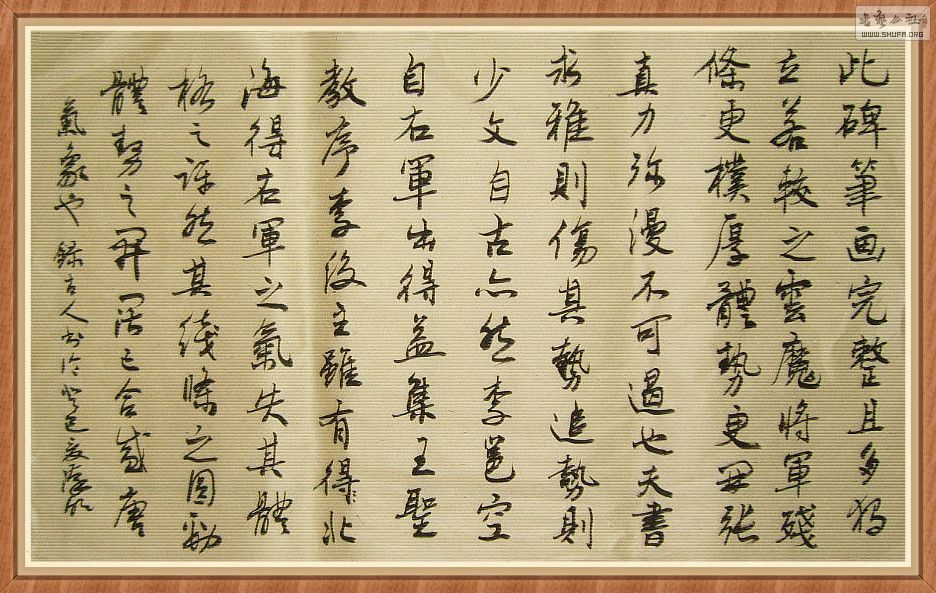 此碑筆画完整且多獨
立若較之雲魔將軍殘
條更樸厚體勢更開張
真力弥漫不可遏也夫書
求雅則傷其勢追勢則
少文自古亦然李邕空
自右軍出得益集王聖
教序李後主雖有得北
海得右軍之氣失其體
格之評然其綫條之圆勁
體勢之開闊已合盛唐
氣象也 錄古人书论
書藝公社
WWW.SHUFA.ORG